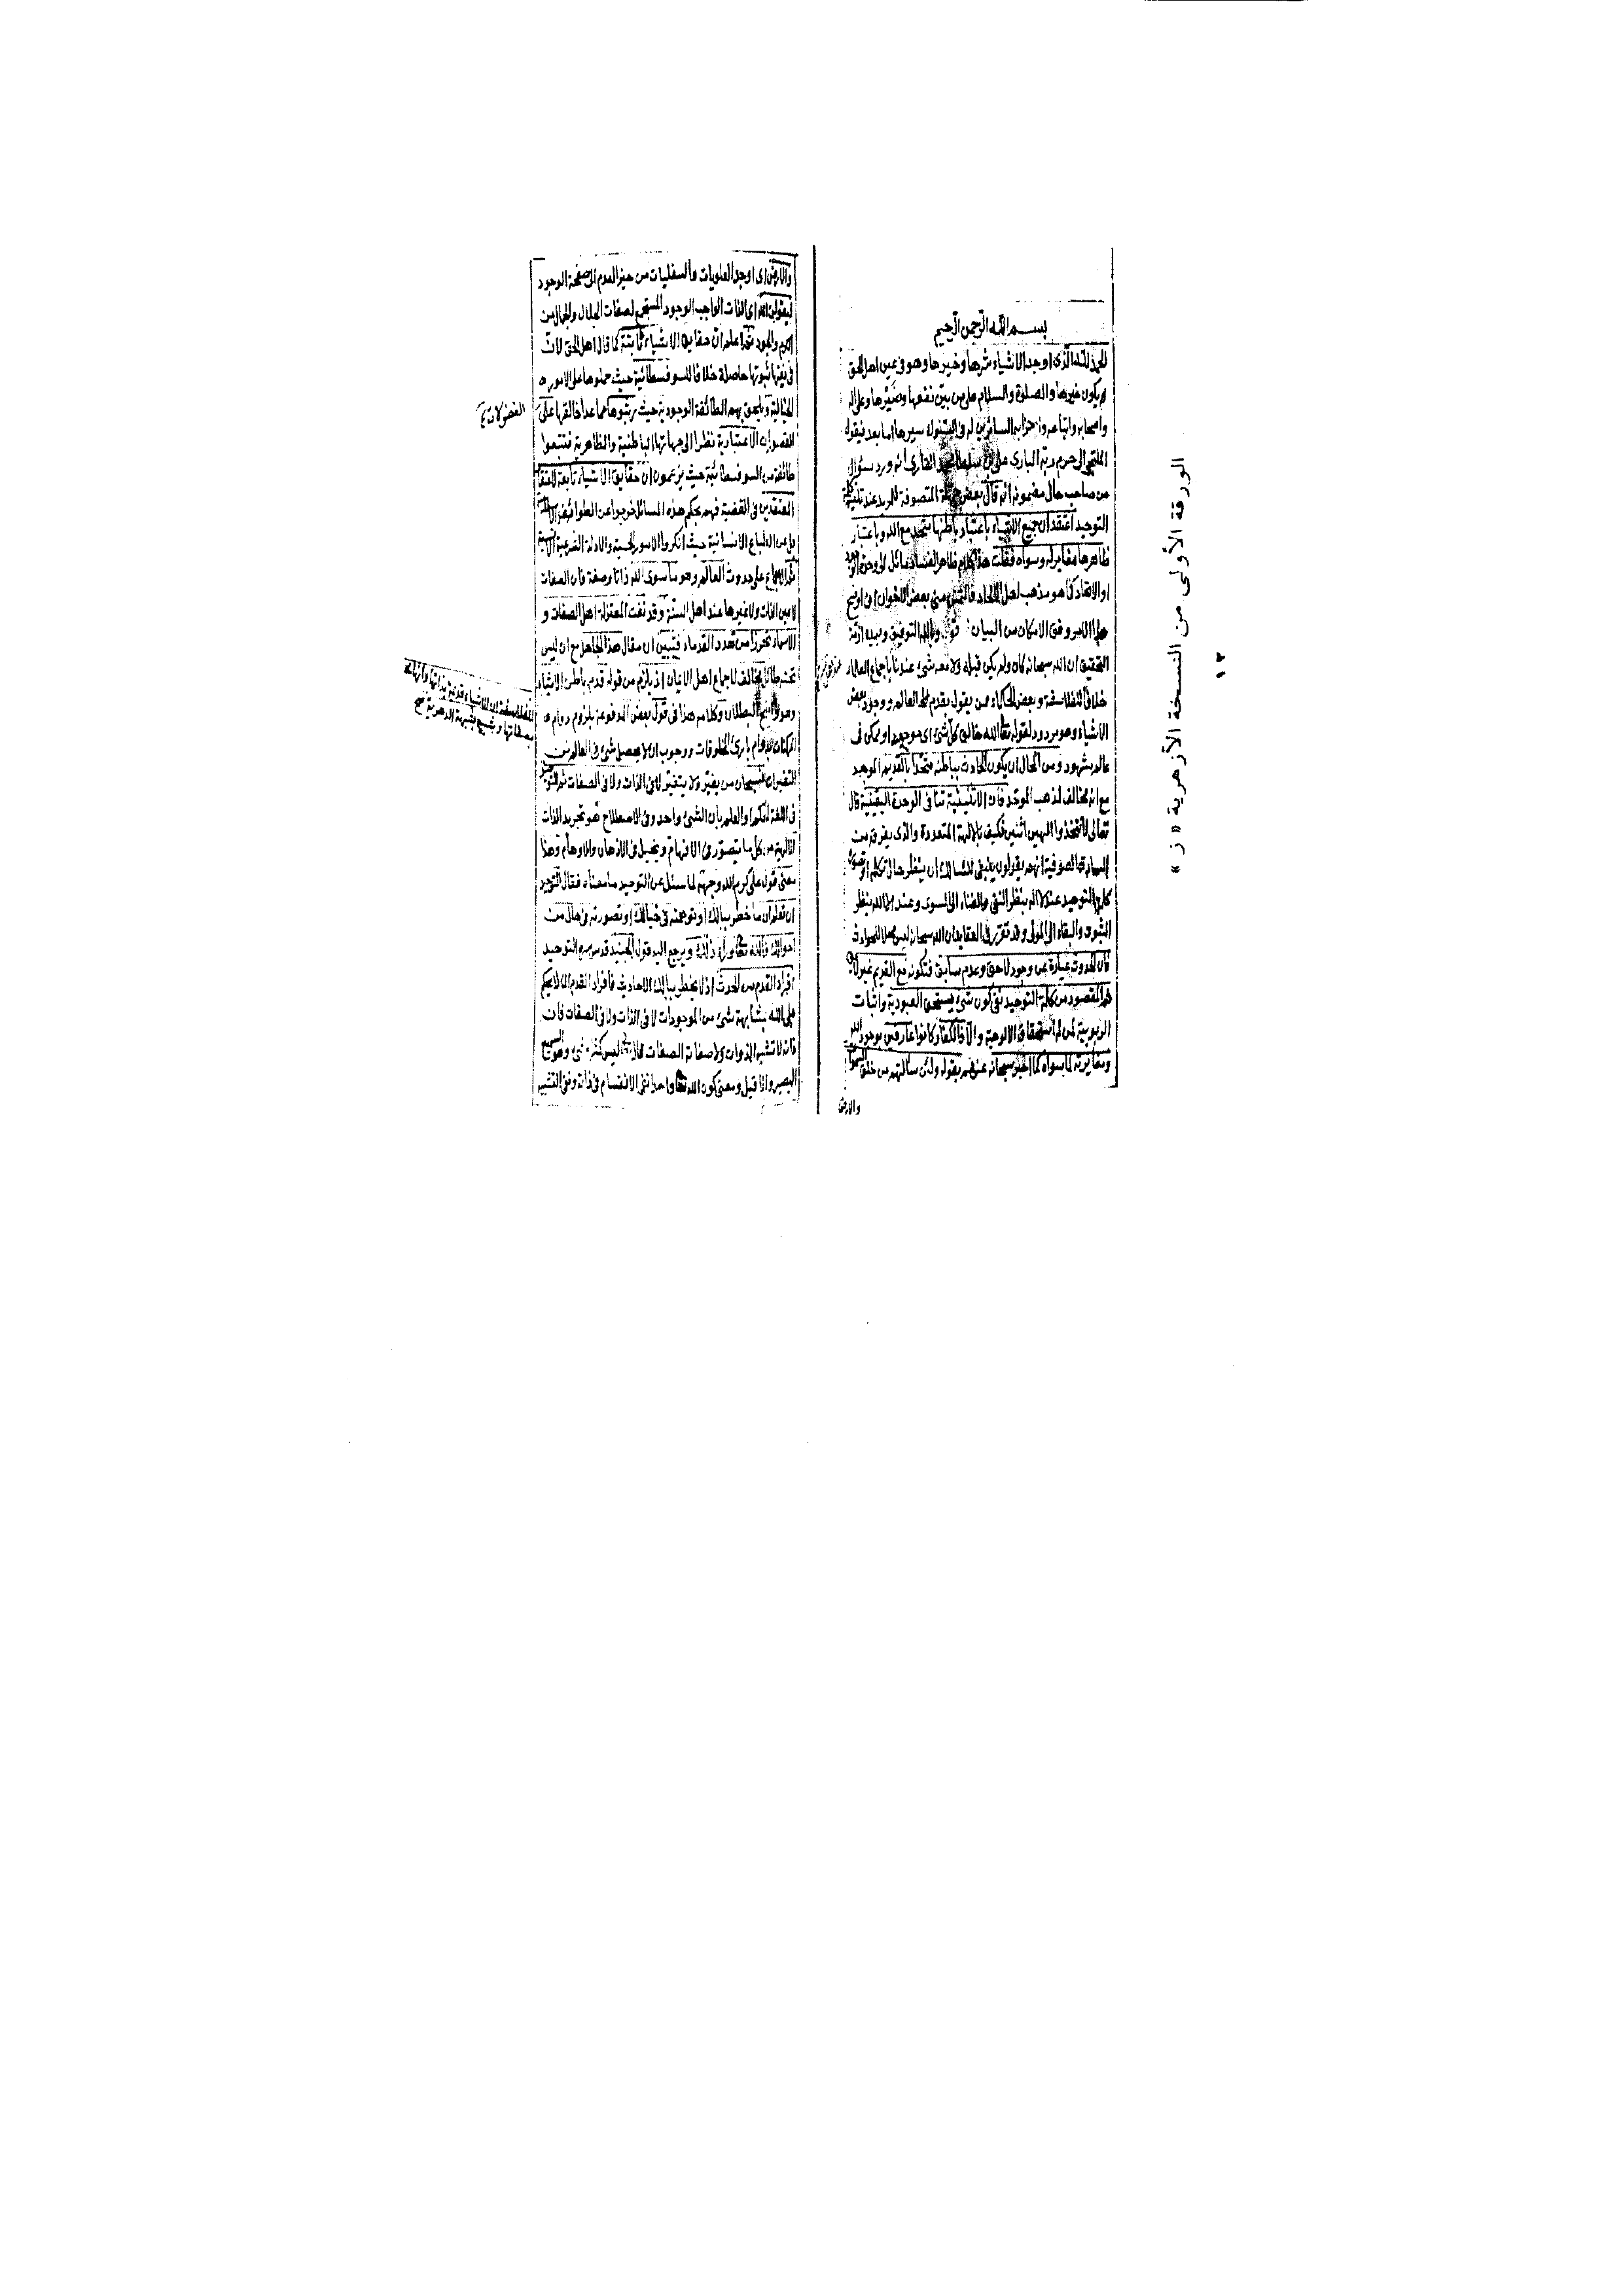 بسم الله الرحمن الرحيم
الحمد لله الذى اوجد الاشياء شرها وخيرها وهو فى عين اهل الحق
يكون غيرها والصلوة والسلام على من بين نفعها وضيرها وعلى اله
واصحابه واتباعه واحزابه السائرين سيرها اما بعد فيقول
الملتجى الى حرم ربه البارى على بن سلطان محمد القارى انه ورد سؤال
من صاحب حال مضمونه انه قال بعض جهلة المتصوفة للمريد عند تلقين كلمة
التوحيد اعتقد ان جميع الاشياء باعتبار باطنها متحد مع الله وباعتبار
ظاهرها مغاير له وسواه فقلت هذا كلام ظاهر الفساد مائل الى وحدة الوجود
او الاتحاد كما هو مذهب اهل الالحاد فالتمس منى بعض الاخوان ان اوضح
هذا الامر وفق الامكان من البيان وبالله التوفيق وبيده ازمة
التحقيق ان الله سبحانه كان ولم يكن قبله ولا معه شئ عندنا باجماع العلماء
خلافا للفلاسفة وبعض الحكماء ممن يقول بقدم العالم ووجود بعض
الاشياء وهو مردود لقوله تعالى الله خالق كل شئ اى موجود او ممكن فى
عالم مشهود ومن المحال ان يكون الحادث بباطنه متحدا بالقديم الموجد
مع انه مخالف لمذهب الموحد فان الاثنينية تنا فى الوحدة اليقينية قال
تعالى لا تتخذوا الهين اثنين فكيف بالالهة المتعددة والذى يعرف من
السادة الصوفية انهم يقولون ينبغى للسالك ان ينظر حال تكلم او تصور
كلمة التوحيد عند لا اله بنظر النفى والفناء الى السوى وعند الا الله بنظر
الثبوت والبقاء الى المولى وقد تقرر فى العقايد ان الله سبحانه ليس محلا للحوادث
فان الحدوث عبارة عن وجود لاحق وعدم سابق فكونه مع القديم غير لايق
ثم المقصود من كلمة التوحيد نفى كون شئ يستحق العبودية واثبات
الربوبية لمن له استحقاق الالوهية والا فالكفار كانوا عارفين بوجود الله
ومغايرته لما سواه كما اخبر سبحانه عنهم بقوله ولئن سالتهم من خلق السموات
والارض
والارض اى اوجد العلويات والسفليات من حيز العدم الى صفحة الوجود
ليقولن الله اى الذات الواجب الوجود المستجمع لصفات الجلال والجمال من
الكرم والجود ثم اعلم ان حقايق الاشياء ثابتة كما قال اهل الحق لان
فى نفيها ثبوتها حاصلة خلافا للسوفسطائية حيث حملوها على الامور
الخيالية ويلحق بهم الطائفة الوجودية حيث رتبوها مما عدا خالقها على
القصورات الاعتبارية نظرا الى جهاتها الباطنية والظاهرية فتتبعوا
طائفة من السوفسطائية حيث يزعمون ان حقايق الاشياء تابعة لاعتقاد
المعتقدين فى القضية فهم بحكم هذه المسائل خرجوا عن الطوائف الاسلامية
بل عن الطباع الانسانية حيث انكروا الامور الحسية والادلة الشرعية
ثم الاجماع على حدوث العالم وهو ما سوى الله ذاتا وصفة فان الصفات
لا عين الذات ولا غيرها عند اهل السنة وقد نفت المعتزلة اهل الصفات و
الاسماء تحرزا من تعدد القدماء فتبين ان مقال هذا الجاهل مع ان ليس
تحته طائل مخالف لاجماع اهل الايمان اذ يلزم من قوله قدم باطن الاشياء
وهو واضح البطلان وكلامه هذا فى قول بعض المدفوعة بلزوم دوام
الممكنات بدوام بارئ المخلوقات ووجوب ان لا يحصل شئ فى العالم من
التغيرات فسبحان من يغير ولا يتغير لا فى الذات ولا فى الصفات ثم التوحيد
فى اللغة الحكم او العلم بان الشئ واحد وفى الاصطلاح هو تجريد الذات
الالهية من كل ما يتصور فى الافهام ويخيل فى الاذهان والاوهام وهذا
معنى قول على كرم الله وجهه لما سئل عن التوحيد ما معناه فقال التوحيد
ان تعلم ان ما خطر ببالك او توهمته فى خيالك او تصورته فى حال من
احوالك فالله تعالى وراء ذلك ويرجع اليه قول الجنيد قدس سره التوحيد
افراد القدم من الحدث اذ لا يخطر ببالك الا حادث فافراد القدم ان لا يحكم
على الله بمشابهة شئ من الموجودات لا فى الذات ولا فى الصفات فان
ذاته لا تشبه الذوات ولا صفاته الصفات قال تعالى ليس كمثله شئ وهو السميع
البصير واذا قيل ومعنى كون الله تعالى واحدا نفى الانقسام فى ذاته ونفى التشبيه
الورقة الأولى من النسخة الأزهرية « ز »
١٢